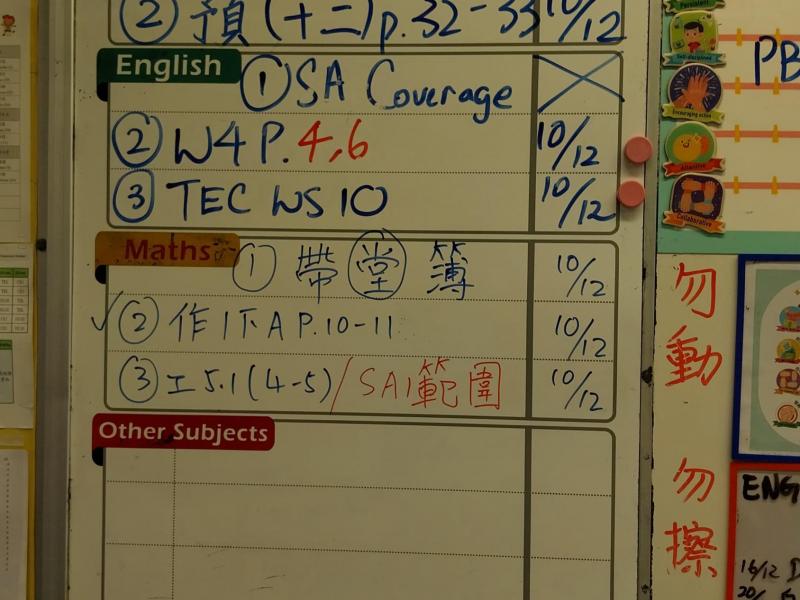 ② 預(十二)p.32-33 10/12
English
① SA Coverage
② W4 P.4,6 10/12
③ TEC WS 10 10/12
Maths
① 帶堂簿 10/12
✓② 作1下A P.10-11 10/12
③ 工5.1(4-5)/SA1範圍 10/12
Other Subjects
Persistent
Self-disciplined
Encouraging
Attentive
Collaborative
PB
勿動
勿擦
ENG
16/12 D
20/